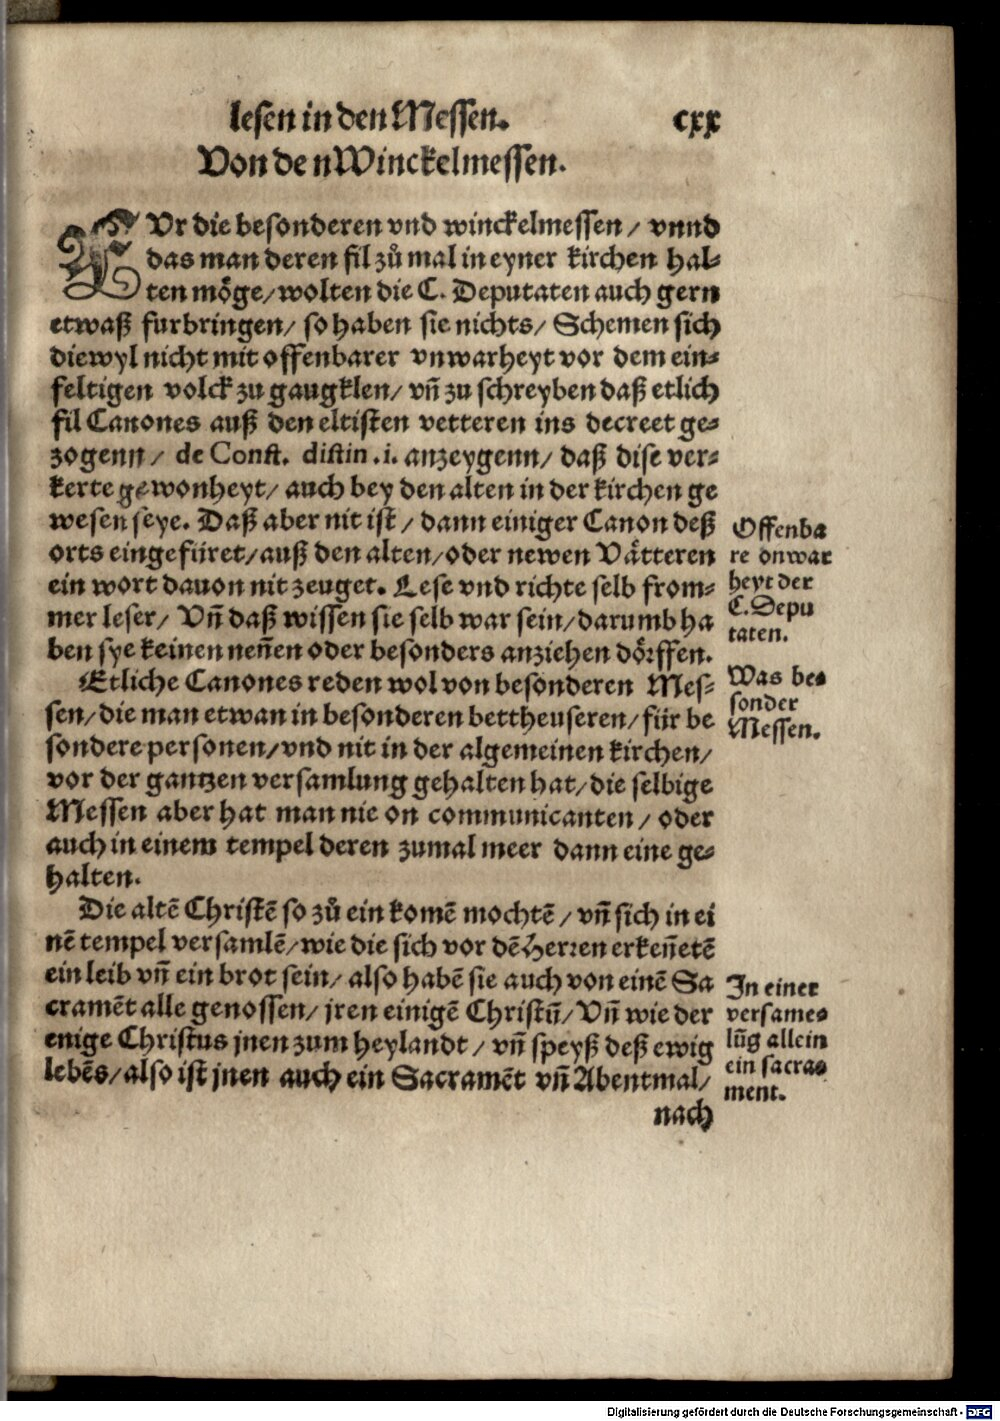 lesen in den Messen.
cxx
Von de nWinckelmessen.
FVr die besonderen vnd winckelmessen / vnnd
das man deren fil zuͦ mal in eyner kirchen hal⸗
ten moͤge/ wolten die C. Deputaten auch gern
etwaß furbringen/ so haben sie nichts/ Schemen sich
diewyl nicht mit offenbarer vnwarheyt vor dem ein⸗
feltigen volck zu gaugklen/ vñ zu schreyben daß etlich
fil Canones auß den eltisten vetteren ins decreet ge⸗
zogenn / de Const. distin .i. anzeygenn/ daß dise ver⸗
kerte gewonheyt/ auch bey den alten in der kirchen ge
wesen seye. Daß aber nit ist / dann einiger Canon deß
orts eingefüret/ auß den alten/ oder newen Vaͤtteren
ein wort dauon nit zeuget. Lese vnd richte selb from⸗
mer leser/ Vñ daß wissen sie selb war sein/ darumb ha
ben sye keinen neñen oder besonders anziehen doͤrffen.
Offenba
re onwar
heyt der
C. Depu
taten.
Etliche Canones reden wol von besonderen Mes⸗
sen/ die man etwan in besonderen bettheuseren/ für be
sondere personen/ vnd nit in der algemeinen kirchen/
vor der gantzen versamlung gehalten hat/ die selbige
Messen aber hat man nie on communicanten / oder
auch in einem tempel deren zumal meer dann eine ge⸗
halten.
Was be⸗
sonder
Messen.
Die altē Christē so zuͦ ein komē mochtē / vñ sich in ei
nē tempel versamlē/ wie die sich vor dē Herren erkeñetē
ein leib vñ ein brot sein/ also habē sie auch von einē Sa
cramēt alle genossen/ jren einigē Christū/ Vñ wie der
enige Christus jnen zum heylandt / vñ speyß deß ewig
lebēs/ also ist jnen auch ein Sacramēt vñ Abentmal/
nach
In einer
versame⸗
lūg allein
ein sacra⸗
ment.
Digitalisierung gefördert durch die Deutsche Forschungsgemeinschaft - DFG